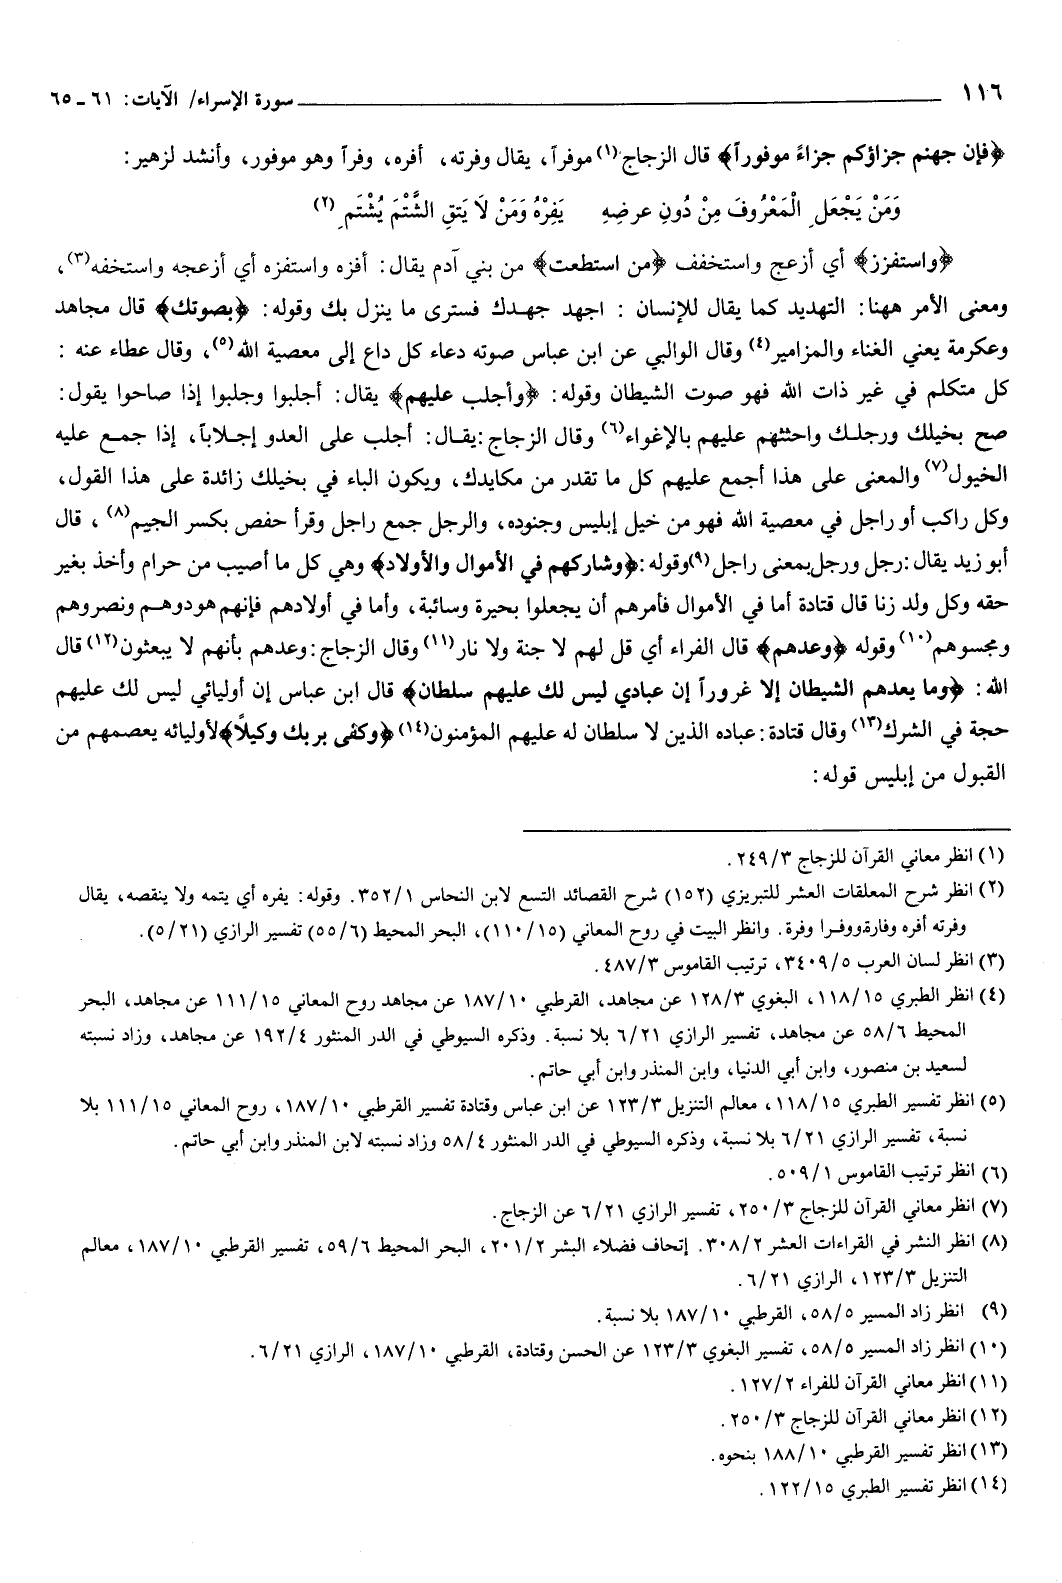 ١١٦ سورة الإسراء/ الآيات: ٦١ - ٦٥
﴿فإن جهنم جزاؤكم جزاءً موفوراً﴾ قال الزجاج(١) موفراً، يقال وفرته، أفره، وفراً وهو موفور، وأنشد لزهير:
وَمَنْ يَجْعَلِ الْمَعْرُوفَ مِنْ دُونِ عرضِهِ يَفِرْهُ وَمَنْ لَا يَتقِ الشَّتْمَ يُشْتَمِ (٢)
﴿واستفزز﴾ أي أزعج واستخفف ﴿من استطعت﴾ من بني آدم يقال: أفزه واستفزه أي أزعجه واستخفه(٣)،
ومعنى الأمر ههنا: التهديد كما يقال للإنسان : اجهد جهدك فسترى ما ينزل بك وقوله: ﴿بصوتك﴾ قال مجاهد
وعكرمة يعني الغناء والمزامير(٤) وقال الوالبي عن ابن عباس صوته دعاء كل داع إلى معصية الله(٥)، وقال عطاء عنه :
كل متكلم في غير ذات الله فهو صوت الشيطان وقوله: ﴿وأجلب عليهم﴾ يقال: أجلبوا وجلبوا إذا صاحوا يقول:
صح بخيلك ورجلك واحثثهم عليهم بالإغواء(٦) وقال الزجاج :يقال: أجلب على العدو إجلاباً، إذا جمع عليه
الخيول(٧) والمعنى على هذا أجمع عليهم كل ما تقدر من مكايدك، ويكون الباء في بخيلك زائدة على هذا القول،
وكل راكب أو راجل في معصية الله فهو من خيل إبليس وجنوده، والرجل جمع راجل وقرأ حفص بكسر الجيم(٨) ، قال
أبو زيد يقال :رجل ورجل بمعنى راجل(٩) وقوله :﴿وشاركهم في الأموال والأولاد﴾ وهي كل ما أصيب من حرام وأخذ بغير
حقه وكل ولد زنا قال قتادة أما في الأموال فأمرهم أن يجعلوا بحيرة وسائبة، وأما في أولادهم فإنهم هودوهم ونصروهم
ومجسوهم(١٠) وقوله ﴿وعدهم﴾ قال الفراء أي قل لهم لا جنة ولا نار(١١) وقال الزجاج :وعدهم بأنهم لا يبعثون(١٢) قال
الله : ﴿وما يعدهم الشيطان إلا غروراً إن عبادي ليس لك عليهم سلطان﴾ قال ابن عباس إن أوليائي ليس لك عليهم
حجة في الشرك(١٣) وقال قتادة: عباده الذين لا سلطان له عليهم المؤمنون(١٤) ﴿وكفى بربك وكيلاً﴾ لأوليائه يعصمهم من
القبول من إبليس قوله:
(١) انظر معاني القرآن للزجاج ٢٤٩/٣.
(٢) انظر شرح المعلقات العشر للتبريزي (١٥٢) شرح القصائد التسع لابن النحاس ٣٥٢/١. وقوله: يفره أي يتمه ولا ينقصه، يقال
وفرته أفره وفارة ووفرا وفرة. وانظر البيت في روح المعاني (١١٠/١٥)، البحر المحيط (٥٥/٦) تفسير الرازي (٥/٢١).
(٣) انظر لسان العرب ٣٤٠٩/٥، ترتيب القاموس ٤٨٧/٣.
(٤) انظر الطبري ١١٨/١٥، البغوي ١٢٨/٣ عن مجاهد، القرطبي ١٨٧/١٠ عن مجاهد روح المعاني ١١١/١٥ عن مجاهد، البحر
المحيط ٥٨/٦ عن مجاهد، تفسير الرازي ٦/٢١ بلا نسبة. وذكره السيوطي في الدر المنثور ١٩٢/٤ عن مجاهد، وزاد نسبته
لسعيد بن منصور، وابن أبي الدنيا، وابن المنذر وابن أبي حاتم.
(٥) انظر تفسير الطبري ١١٨/١٥، معالم التنزيل ١٢٣/٣ عن ابن عباس وقتادة تفسير القرطبي ١٨٧/١٠، روح المعاني ١١١/١٥ بلا
نسبة، تفسير الرازي ٦/٢١ بلا نسبة، وذكره السيوطي في الدر المنثور ٥٨/٤ وزاد نسبته لابن المنذر وابن أبي حاتم.
(٦) انظر ترتيب القاموس ٥٠٩/١.
(٧) انظر معاني القرآن للزجاج ٢٥٠/٣، تفسير الرازي ٦/٢١ عن الزجاج.
(٨) انظر النشر في القراءات العشر ٣٠٨/٢. إتحاف فضلاء البشر ٢٠١/٢، البحر المحيط ٥٩/٦، تفسير القرطبي ١٨٧/١٠، معالم
التنزيل ١٢٣/٣، الرازي ٦/٢١.
(٩) انظر زاد المسير ٥٨/٥، القرطبي ١٨٧/١٠ بلا نسبة.
(١٠) انظر زاد المسير ٥٨/٥، تفسير البغوي ١٢٣/٣ عن الحسن وقتادة، القرطبي ١٨٧/١٠، الرازي ٦/٢١.
(١١) انظر معاني القرآن للفراء ١٢٧/٢.
(١٢) انظر معاني القرآن للزجاج ٢٥٠/٣.
(١٣) انظر تفسير القرطبي ١٨٨/١٠ بنحوه.
(١٤) انظر تفسير الطبري ١٢٢/١٥.